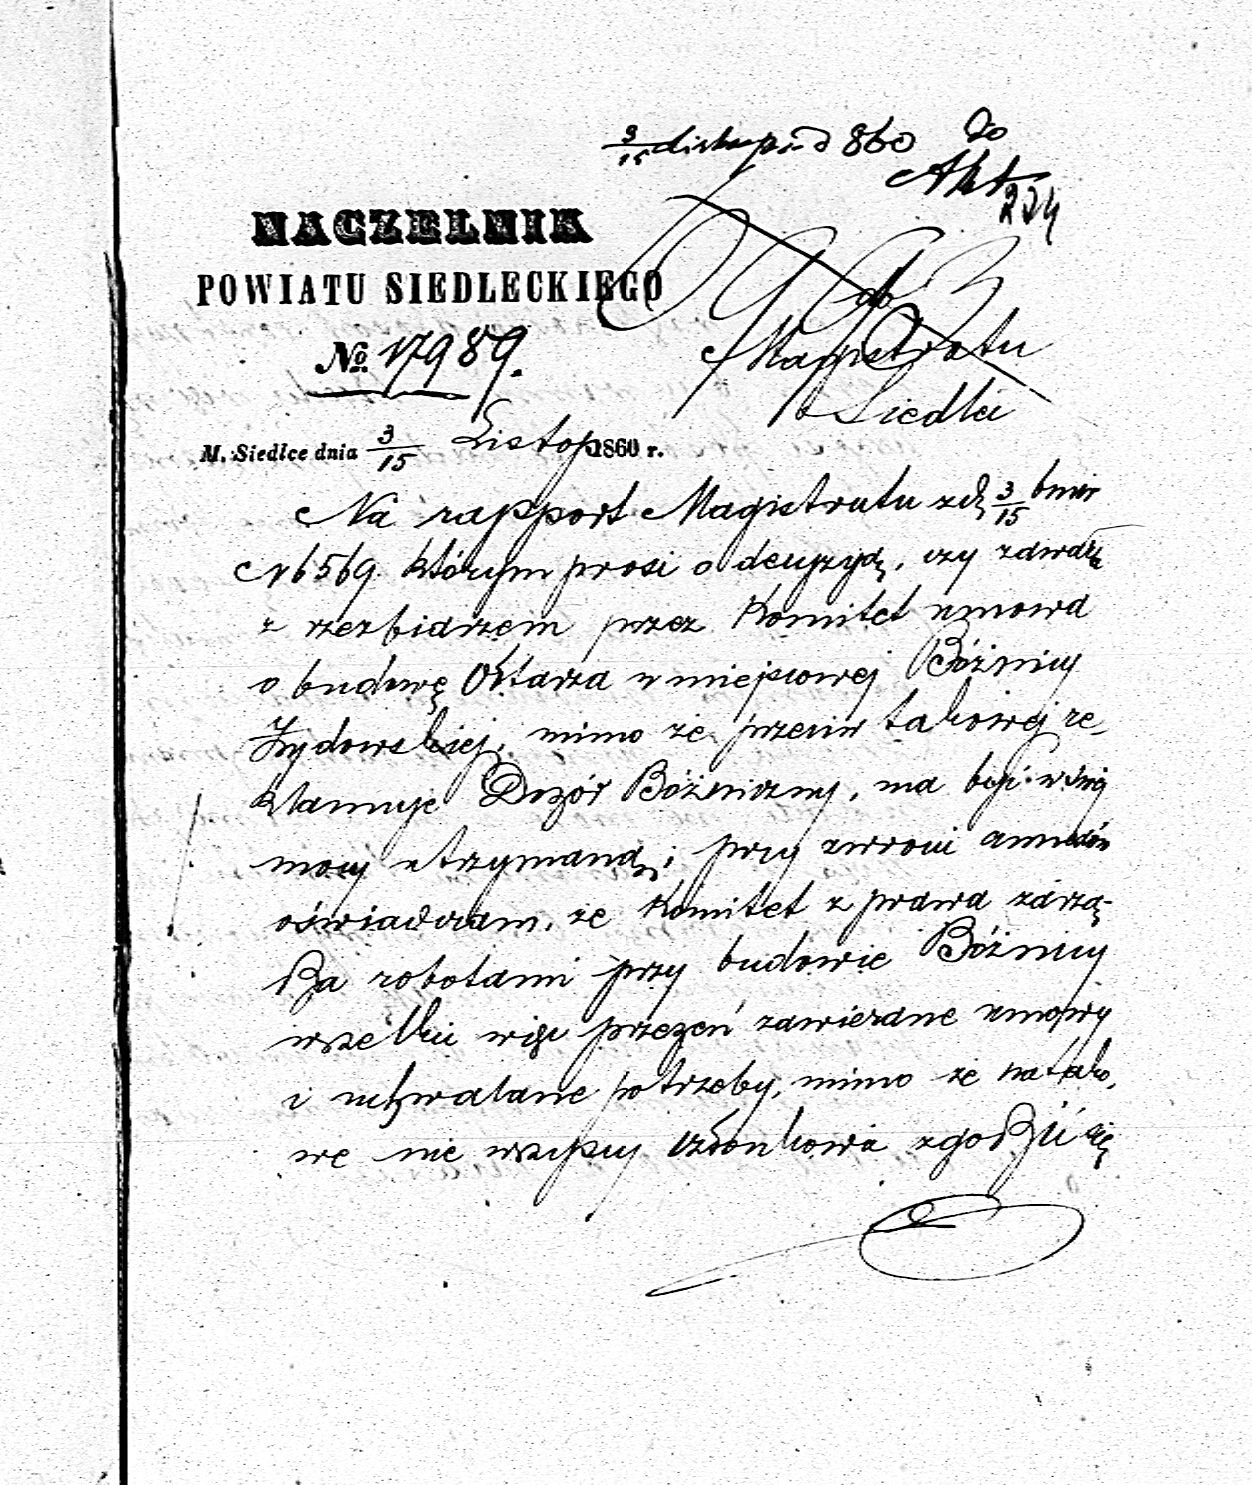 3/15 Listopad 860 Do
Akt
224
NACZELNIK
POWIATU SIEDLECKIEGO
do
Magistratu
Siedlce
No. 17989.
M. Siedlce dnia 3/15 Listop 1860 r.
Na rapport Magistratu z d. 3/15 bmir
N 6569. którym prosi o decyzyą, czy zawarta
z rzezbiarzem przez Komitet umowa
o budowę Ołtarza w miejscowej Bóżnicy
Żydowskiej, mimo że przeciw takowej re-
klamuje Dozór Bóżniczny, ma być w swej
mocy utrzymaną; przy zwrocie annexów
oświadczam, że Komitet z prawa zarzą-
dza robotami przy budowie Bóżnicy
wszelkie więc przezeń zawierane umowy
i uchwalane potrzeby, mimo że na tako-
we nie wszyscy członkowie zgodzić się